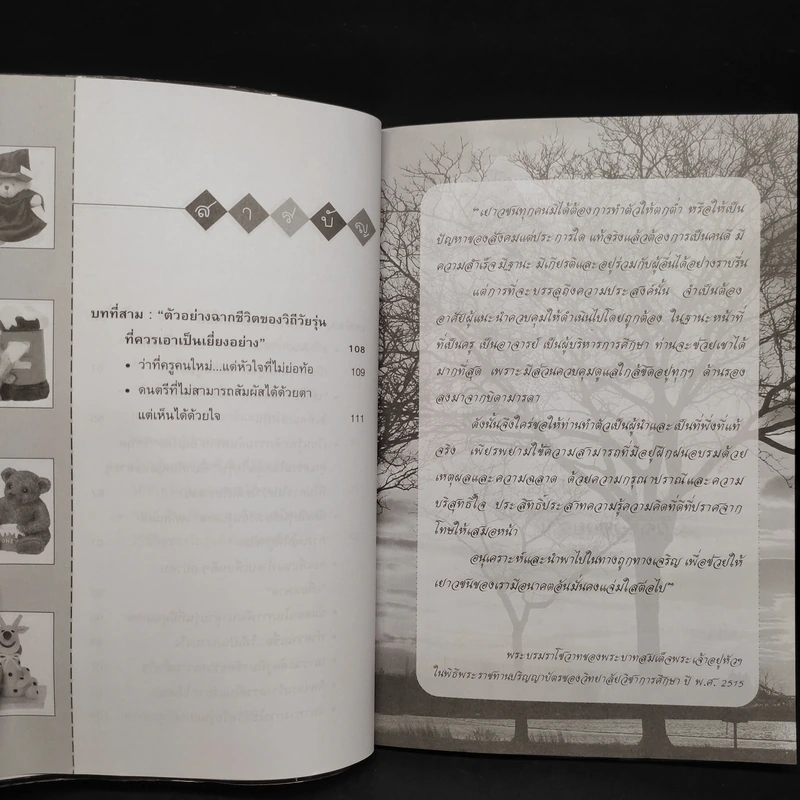 สารบัญ
บทที่สาม : “ตัวอย่างฉากชีวิตของวิถีวัยรุ่น
ที่ควรเอาเป็นเยี่ยงอย่าง” 108
• ว่าที่ครูคนใหม่...แต่หัวใจที่ไม่ย่อท้อ 109
• ดนตรีที่ไม่สามารถสัมผัสได้ด้วยตา
แต่เห็นได้ด้วยใจ 111
“เยาวชนทุกคนมิได้ต้องการทำตัวให้ตกต่ำ หรือให้เป็น
ปัญหาของสังคมแต่ประการใด แท้จริงแล้วต้องการเป็นคนดี มี
ความสำเร็จ มีฐานะ มีเกียรติและอยู่ร่วมกับผู้อื่นได้อย่างราบรื่น
แต่การที่จะบรรลุถึงความประสงค์นั้น จำเป็นต้อง
อาศัยผู้แนะนำควบคุมให้ดำเนินไปโดยถูกต้อง ในฐานะหน้าที่
ที่เป็นครู เป็นอาจารย์ เป็นผู้บริหารการศึกษา ท่านจะช่วยเขาได้
มากที่สุด เพราะมีส่วนควบคุมดูแลใกล้ชิดอยู่ทุกๆ ด้านรอง
ลงมาจากบิดามารดา
ดังนั้นจึงใคร่ขอให้ท่านทำตัวเป็นผู้นำและเป็นที่พึ่งที่แท้
จริง เพียรพยามใช้ความสามารถที่มีอยู่ฝึกฝนอบรมด้วย
เหตุผลและความฉลาด ด้วยความกรุณาปราณีและความ
บริสุทธิ์ใจ ประสิทธิ์ประสาทความรู้ความคิดที่ดีที่ปราศจาก
โทษให้เสมอหน้า
อนุเคราะห์และนำพาไปในทางถูกทางเจริญ เพื่อช่วยให้
เยาวชนของเรามีอนาคตอันมั่นคงแจ่มใสต่อไป”
พระบรมราโชวาทของพระบาทสมเด็จพระเจ้าอยู่หัวฯ
ในพิธีพระราชทานปริญญาบัตรของวิทยาลัยวิชาการศึกษา ปี พ.ศ. 2515